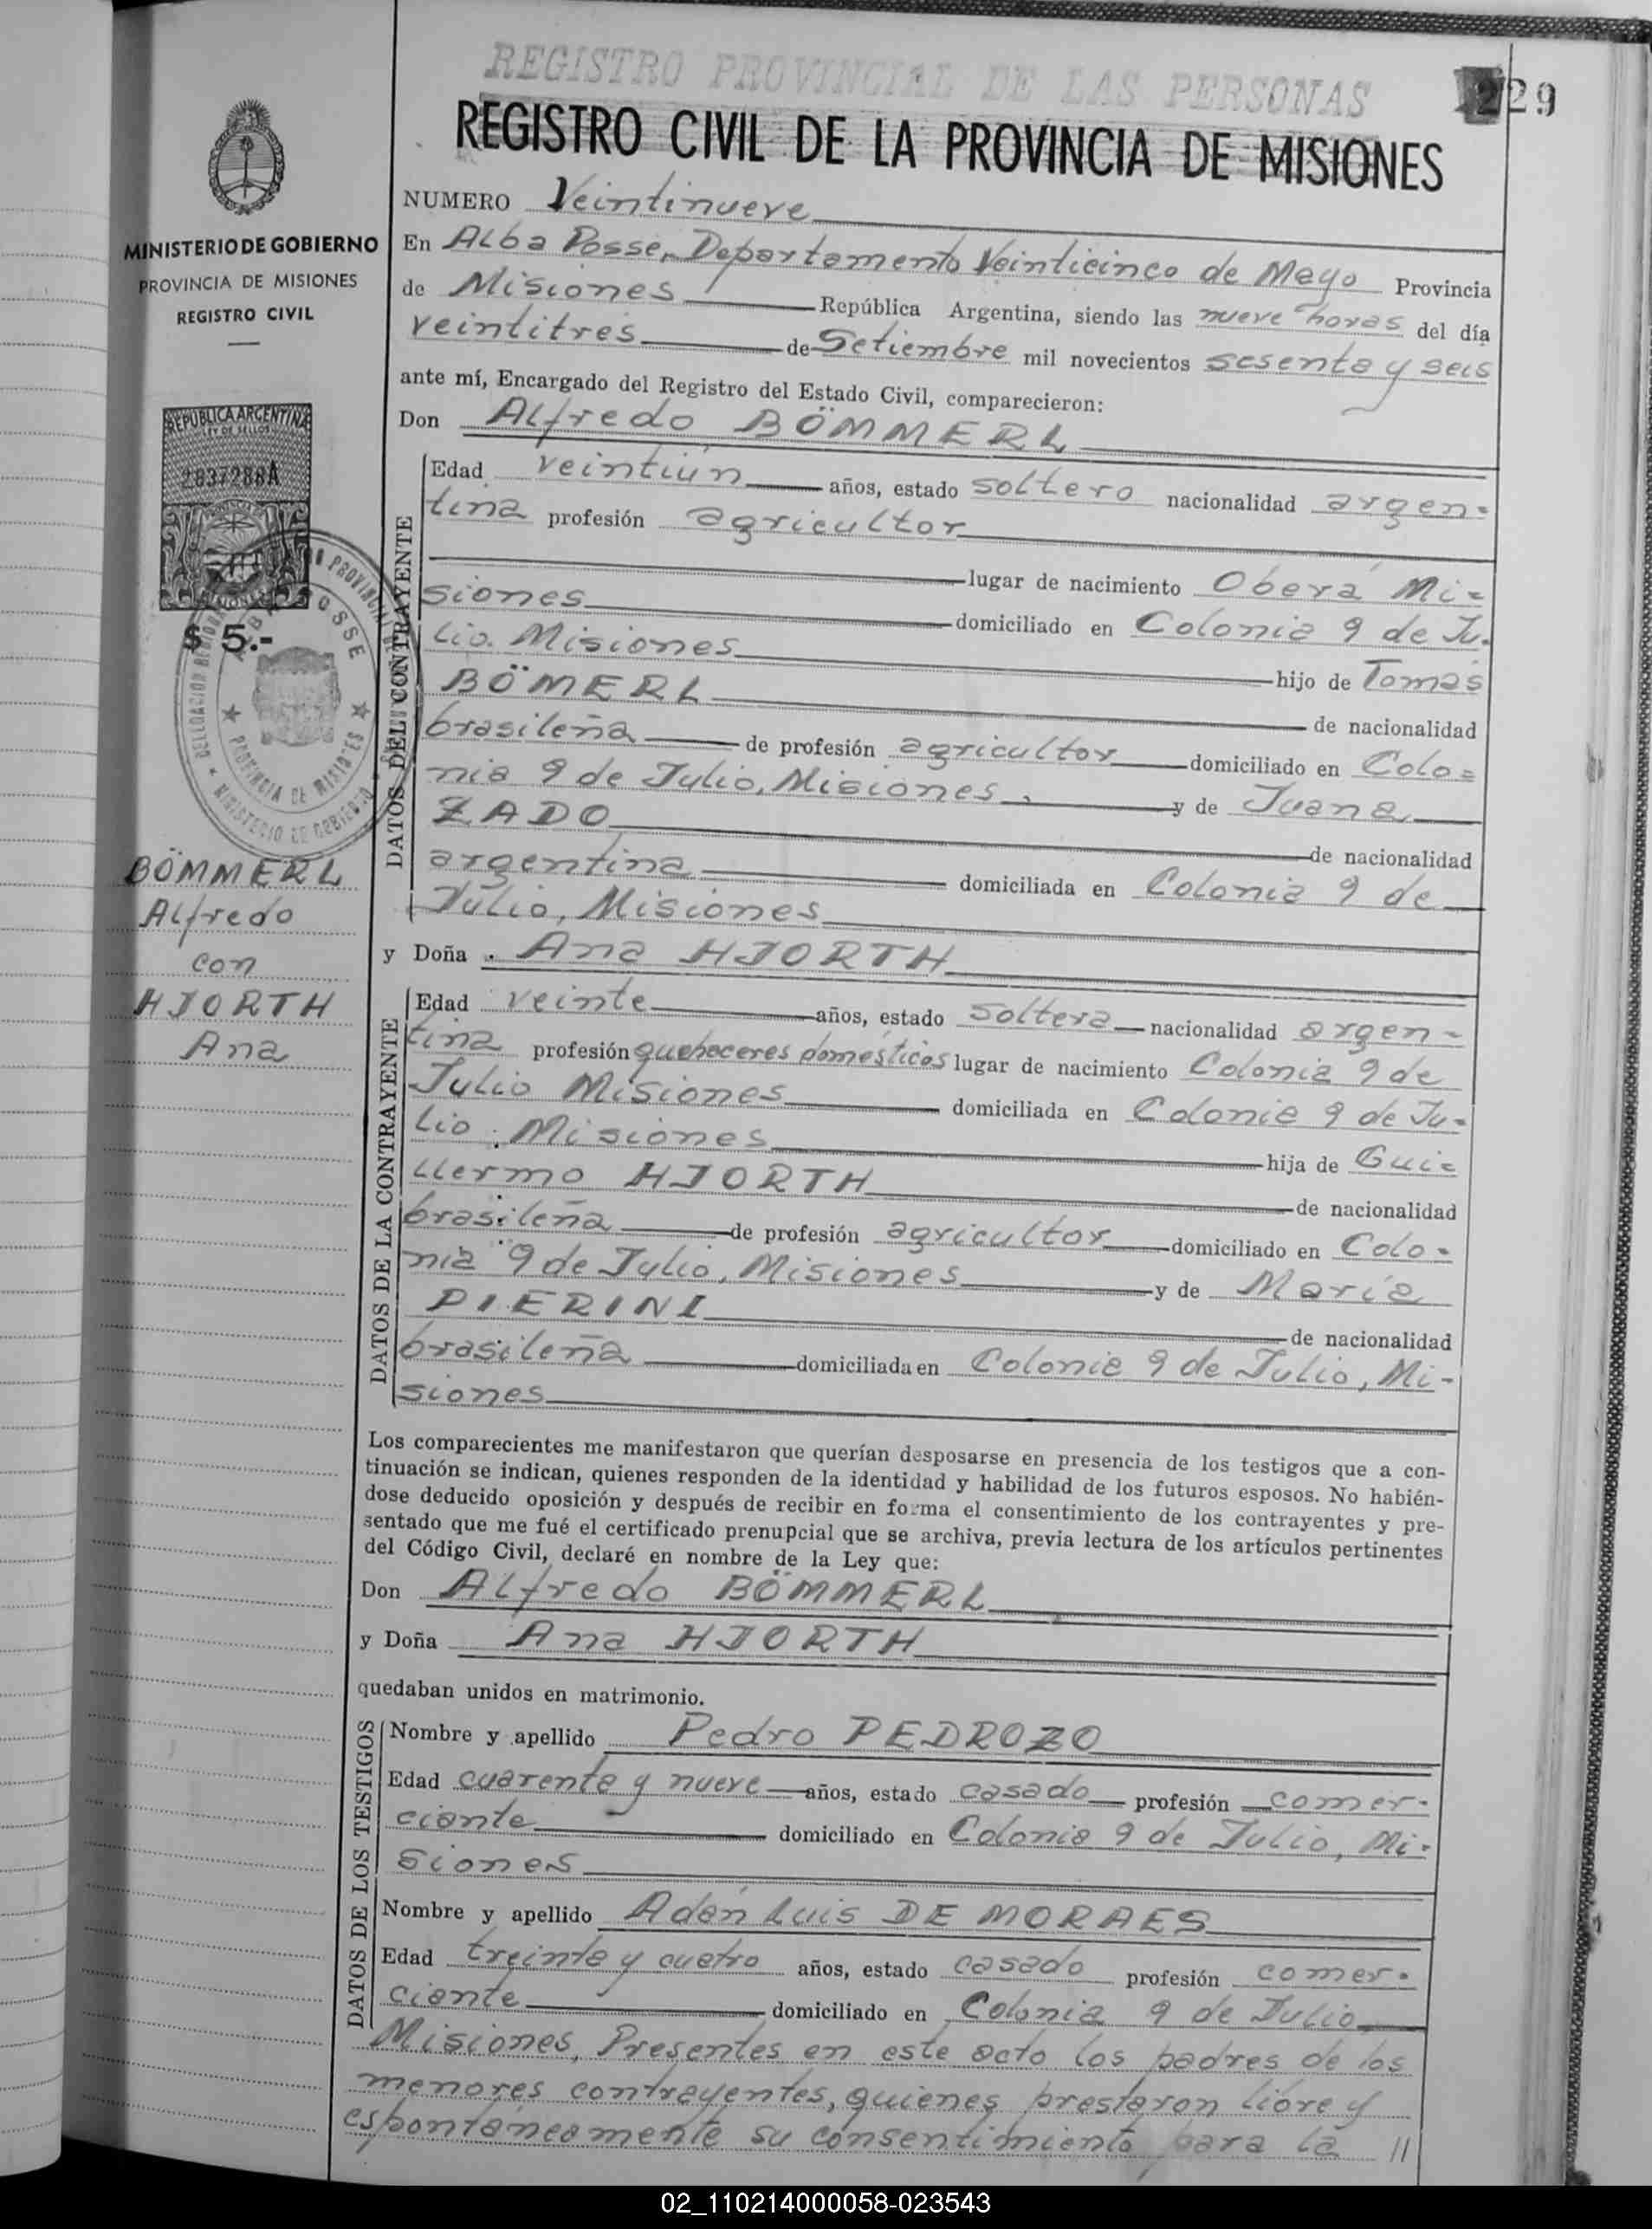 REGISTRO PROVINCIAL DE LAS PERSONAS
229
REGISTRO CIVIL DE LA PROVINCIA DE MISIONES
MINISTERIO DE GOBIERNO
PROVINCIA DE MISIONES
REGISTRO CIVIL
REPUBLICA ARGENTINA
LEY DE SELLOS
2837288A
MISIONES
$ 5.-
BÖMMERL
Alfredo
con
HJORTH
Ana
NUMERO Veintinueve
En Alba Posse, Departamento Veinticinco de Mayo Provincia
de Misiones República Argentina, siendo las nueve horas del día
veintitres de Setiembre mil novecientos sesenta y seis
ante mí, Encargado del Registro del Estado Civil, comparecieron:
Don Alfredo BÖMMERL
DATOS DEL CONTRAYENTE
Edad veintiún años, estado soltero nacionalidad argen-
tina profesión agricultor
lugar de nacimiento Oberá Mi-
siones domiciliado en Colonia 9 de Ju-
lio. Misiones hijo de Tomás
BÖMERL de nacionalidad
brasileña de profesión agricultor domiciliado en Colo-
nia 9 de Julio, Misiones, y de Juana
ZADO de nacionalidad
argentina domiciliada en Colonia 9 de
Julio, Misiones
y Doña Ana HJORTH
DATOS DE LA CONTRAYENTE
Edad veinte años, estado soltera nacionalidad argen-
tina profesión quehaceres domésticos lugar de nacimiento Colonia 9 de
Julio Misiones domiciliada en Colonia 9 de Ju-
lio. Misiones hija de Gui-
llermo HJORTH de nacionalidad
brasileña de profesión agricultor domiciliado en Colo-
nia 9 de Julio, Misiones y de María
PIERINI de nacionalidad
brasileña domiciliada en Colonia 9 de Julio, Mi-
siones
Los comparecientes me manifestaron que querían desposarse en presencia de los testigos que a con-
tinuación se indican, quienes responden de la identidad y habilidad de los futuros esposos. No habién-
dose deducido oposición y después de recibir en forma el consentimiento de los contrayentes y pre-
sentado que me fué el certificado prenupcial que se archiva, previa lectura de los artículos pertinentes
del Código Civil, declaré en nombre de la Ley que:
Don Alfredo BÖMMERL
y Doña Ana HJORTH
quedaban unidos en matrimonio.
DATOS DE LOS TESTIGOS
Nombre y apellido Pedro PEDROZO
Edad cuarenta y nueve años, estado casado profesión comer-
ciante domiciliado en Colonia 9 de Julio, Mi-
siones
Nombre y apellido Adán Luis DE MORAES
Edad treinta y cuatro años, estado casado profesión comer-
ciante domiciliado en Colonia 9 de Julio
Misiones, Presentes en este acto los padres de los
menores contrayentes, quienes prestaron libre y
espontáneamente su consentimiento para la //
02_110214000058-023543